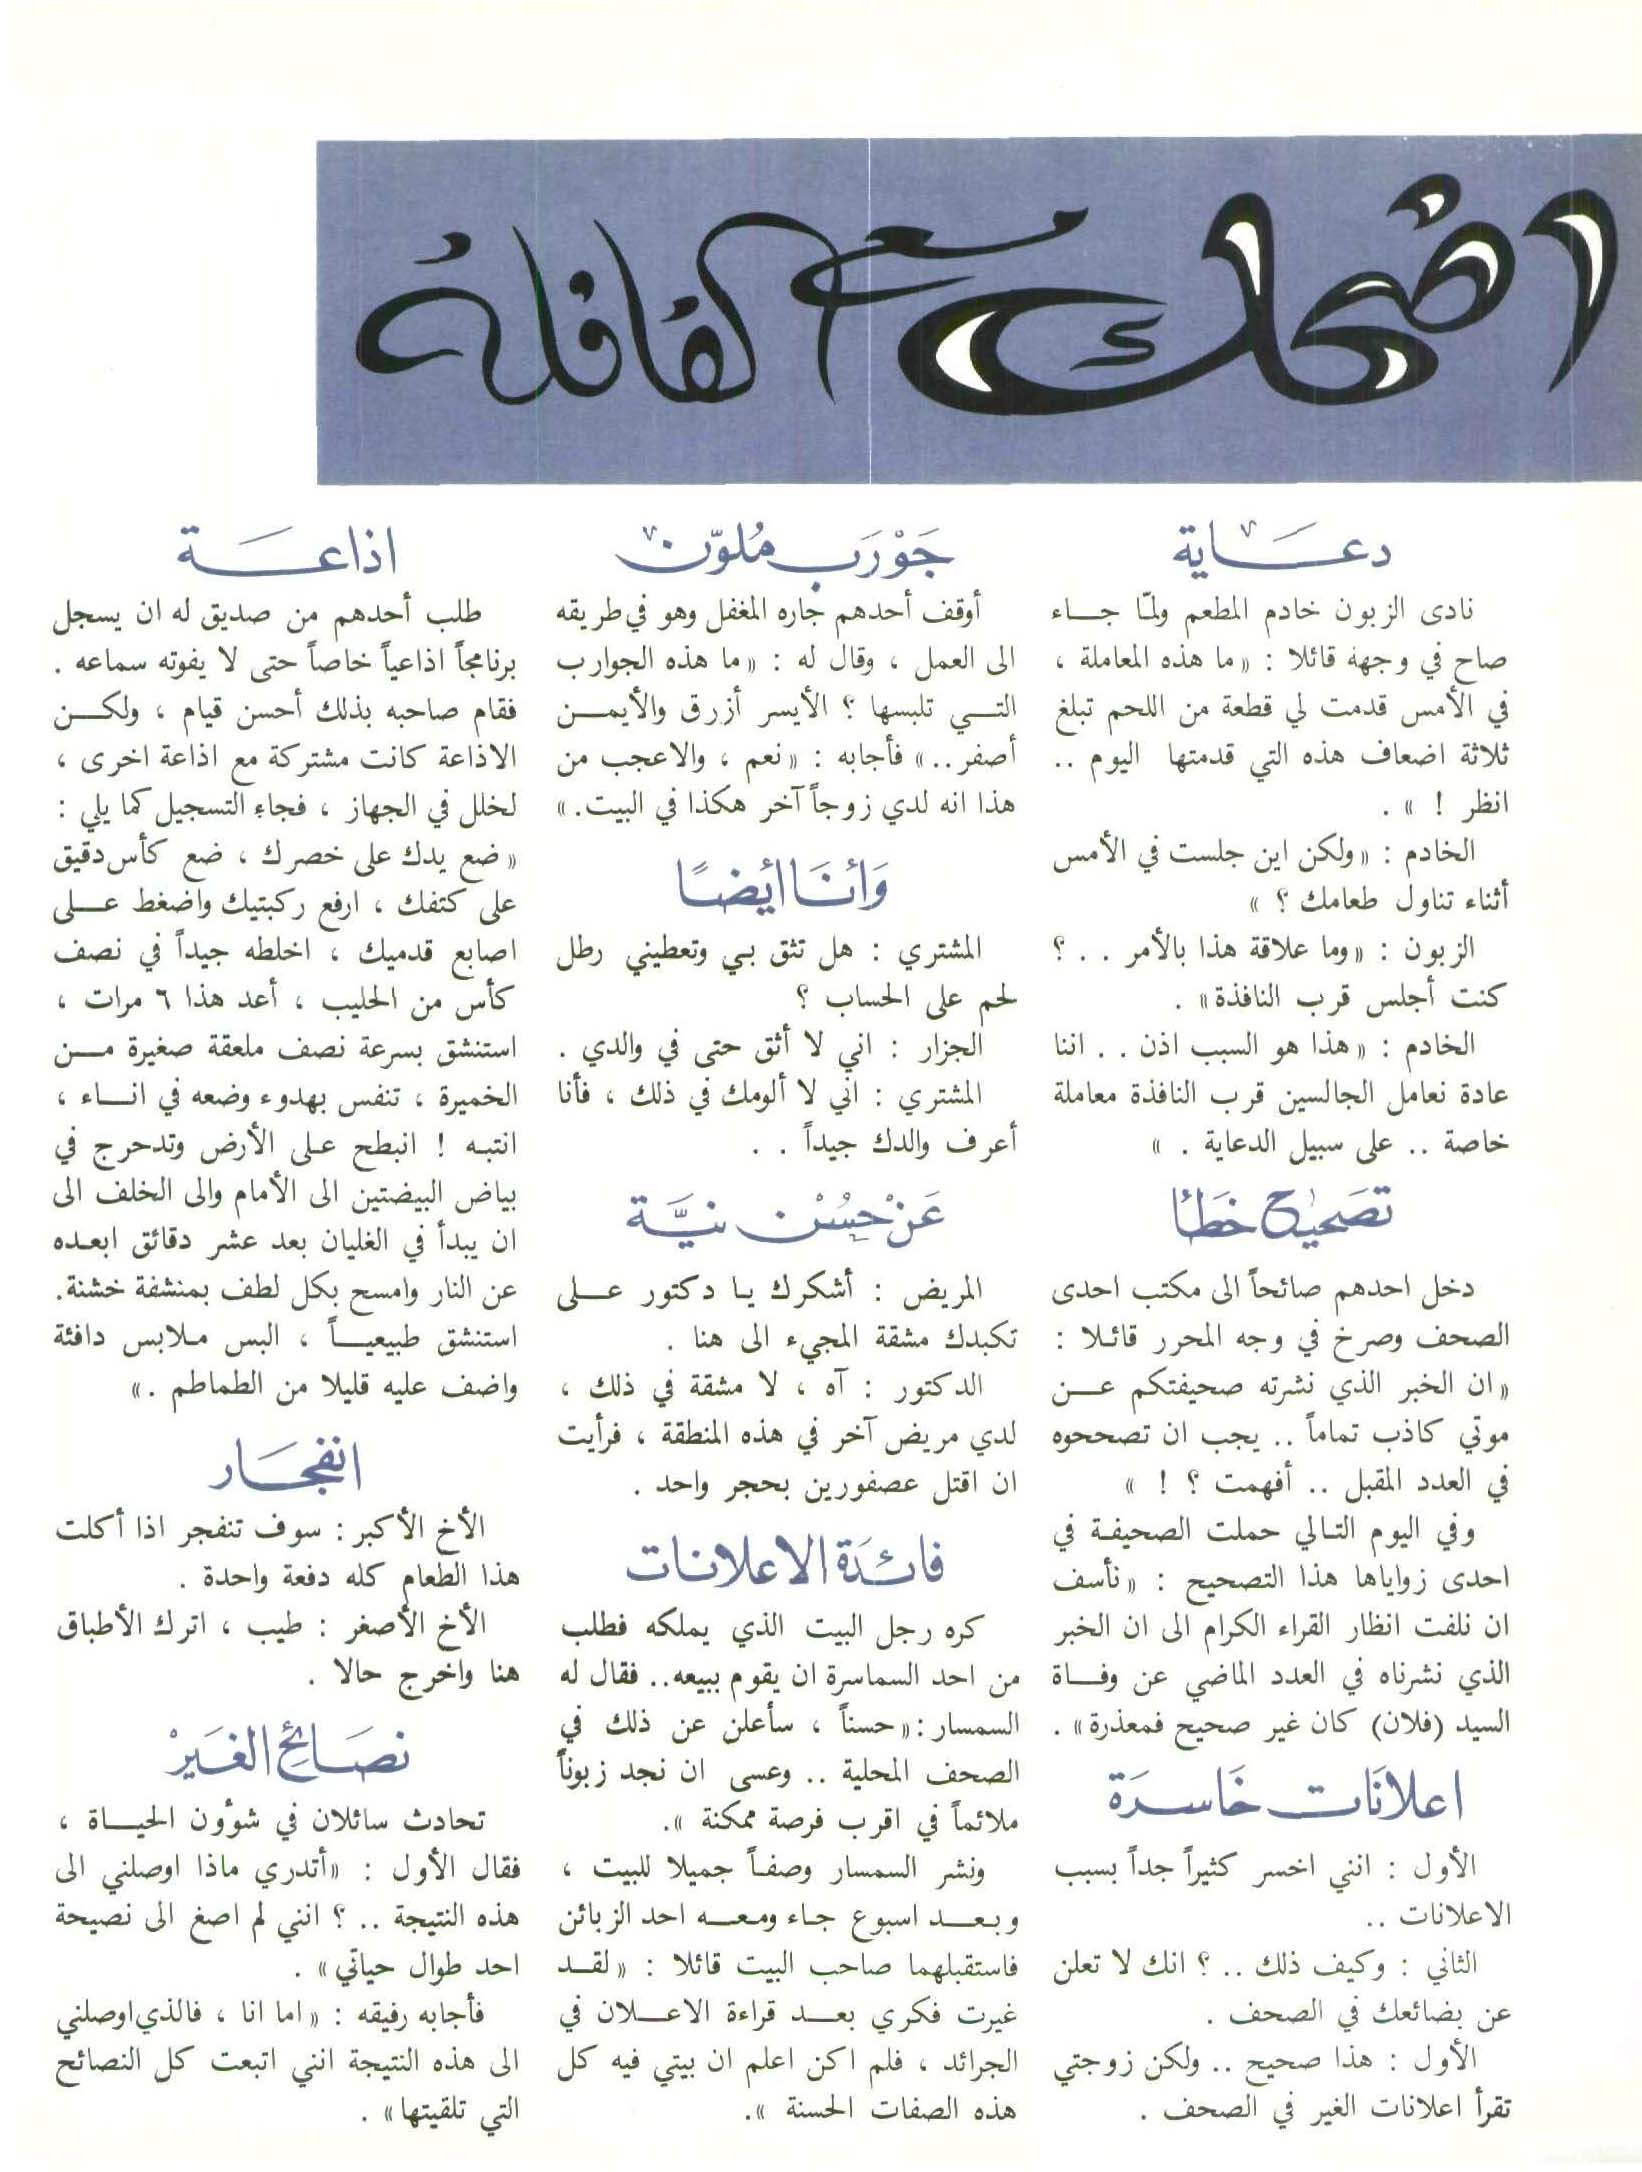 اضحك مع القافلة
دعاية
نادى الزبون خادم المطعم ولمّا جاء
صاح في وجهه قائلا : «ما هذه المعاملة ،
في الأمس قدمت لي قطعة من اللحم تبلغ
ثلاثة اضعاف هذه التي قدمتها اليوم ..
انظر ! » .
الخادم : «ولكن اين جلست في الأمس
أثناء تناول طعامك ؟ »
الزبون : «وما علاقة هذا بالأمر . . ؟
كنت أجلس قرب النافذة» .
الخادم : «هذا هو السبب اذن . . اننا
عادة نعامل الجالسين قرب النافذة معاملة
خاصة .. على سبيل الدعاية . »
تصَحيح خطَأ
دخل احدهم صائحاً الى مكتب احدى
الصحف وصرخ في وجه المحرر قائلا :
«ان الخبر الذي نشرته صحيفتكم عن
موتي كاذب تماماً .. يجب ان تصححوه
في العدد المقبل .. أفهمت ؟ ! »
وفي اليوم التالي حملت الصحيفة في
احدى زواياها هذا التصحيح : «نأسف
ان نلفت انظار القراء الكرام الى ان الخبر
الذي نشرناه في العدد الماضي عن وفاة
السيد (فلان) كان غير صحيح فمعذرة» .
اعلانَات خَاسرَة
الأول : انني اخسر كثيراً جداً بسبب
الاعلانات ..
الثاني : وكيف ذلك .. ؟ انك لا تعلن
عن بضائعك في الصحف .
الأول : هذا صحيح .. ولكن زوجتي
تقرأ اعلانات الغير في الصحف .
جَوْرَب مُلوّن
أوقف أحدهم جاره المغفل وهو في طريقه
الى العمل ، وقال له : «ما هذه الجوارب
التي تلبسها ؟ الأيسر أزرق والأيمن
أصفر ..» فأجابه : «نعم ، والاعجب من
هذا انه لدي زوجاً آخر هكذا في البيت.»
وَأنَا أيضًا
المشتري : هل تثق بي وتعطيني رطل
لحم على الحساب ؟
الجزار : اني لا أثق حتى في والدي .
المشتري : اني لا ألومك في ذلك ، فأنا
أعرف والدك جيداً . .
عَنْ حُسْن نيَّة
المريض : أشكرك يا دكتور على
تكبدك مشقة المجيء الى هنا .
الدكتور : آه ، لا مشقة في ذلك ،
لدي مريض آخر في هذه المنطقة ، فرأيت
ان اقتل عصفورين بحجر واحد .
فائدَة الاعلانات
كره رجل البيت الذي يملكه فطلب
من احد السماسرة ان يقوم ببيعه.. فقال له
السمسار : «حسناً ، سأعلن عن ذلك في
الصحف المحلية .. وعسى ان نجد زبوناً
ملائماً في اقرب فرصة ممكنة ».
ونشر السمسار وصفاً جميلا للبيت ،
وبعد اسبوع جاء ومعه احد الزبائن
فاستقبلهما صاحب البيت قائلا : «لقد
غيرت فكري بعد قراءة الاعلان في
الجرائد ، فلم اكن اعلم ان بيتي فيه كل
هذه الصفات الحسنة ».
اذاعَة
طلب أحدهم من صديق له ان يسجل
برنامجاً اذاعياً خاصاً حتى لا يفوته سماعه .
فقام صاحبه بذلك أحسن قيام ، ولكن
الاذاعة كانت مشتركة مع اذاعة اخرى ،
لخلل في الجهاز ، فجاء التسجيل كما يلي :
«ضع يدك على خصرك ، ضع كأس دقيق
على كتفك ، ارفع ركبتيك واضغط على
اصابع قدميك ، اخلطه جيداً في نصف
كأس من الحليب ، أعد هذا ٦ مرات ،
استنشق بسرعة نصف ملعقة صغيرة من
الخميرة ، تنفس بهدوء وضعه في اناء ،
انتبه ! انبطح على الأرض وتدحرج في
بياض البيضتين الى الأمام والى الخلف الى
ان يبدأ في الغليان بعد عشر دقائق ابعده
عن النار وامسح بكل لطف بمنشفة خشنة.
استنشق طبيعياً ، البس ملابس دافئة
واضف عليه قليلا من الطماطم .»
انفجَار
الأخ الأكبر : سوف تنفجر اذا أكلت
هذا الطعام كله دفعة واحدة .
الأخ الأصغر : طيب ، اترك الأطباق
هنا واخرج حالا .
نصَائح الغَيرْ
تحادث سائلان في شؤون الحياة ،
فقال الأول : «أتدري ماذا اوصلني الى
هذه النتيجة .. ؟ انني لم اصغ الى نصيحة
احد طوال حياتي» .
فأجابه رفيقه : «اما انا ، فالذي اوصلني
الى هذه النتيجة انني اتبعت كل النصائح
التي تلقيتها» .